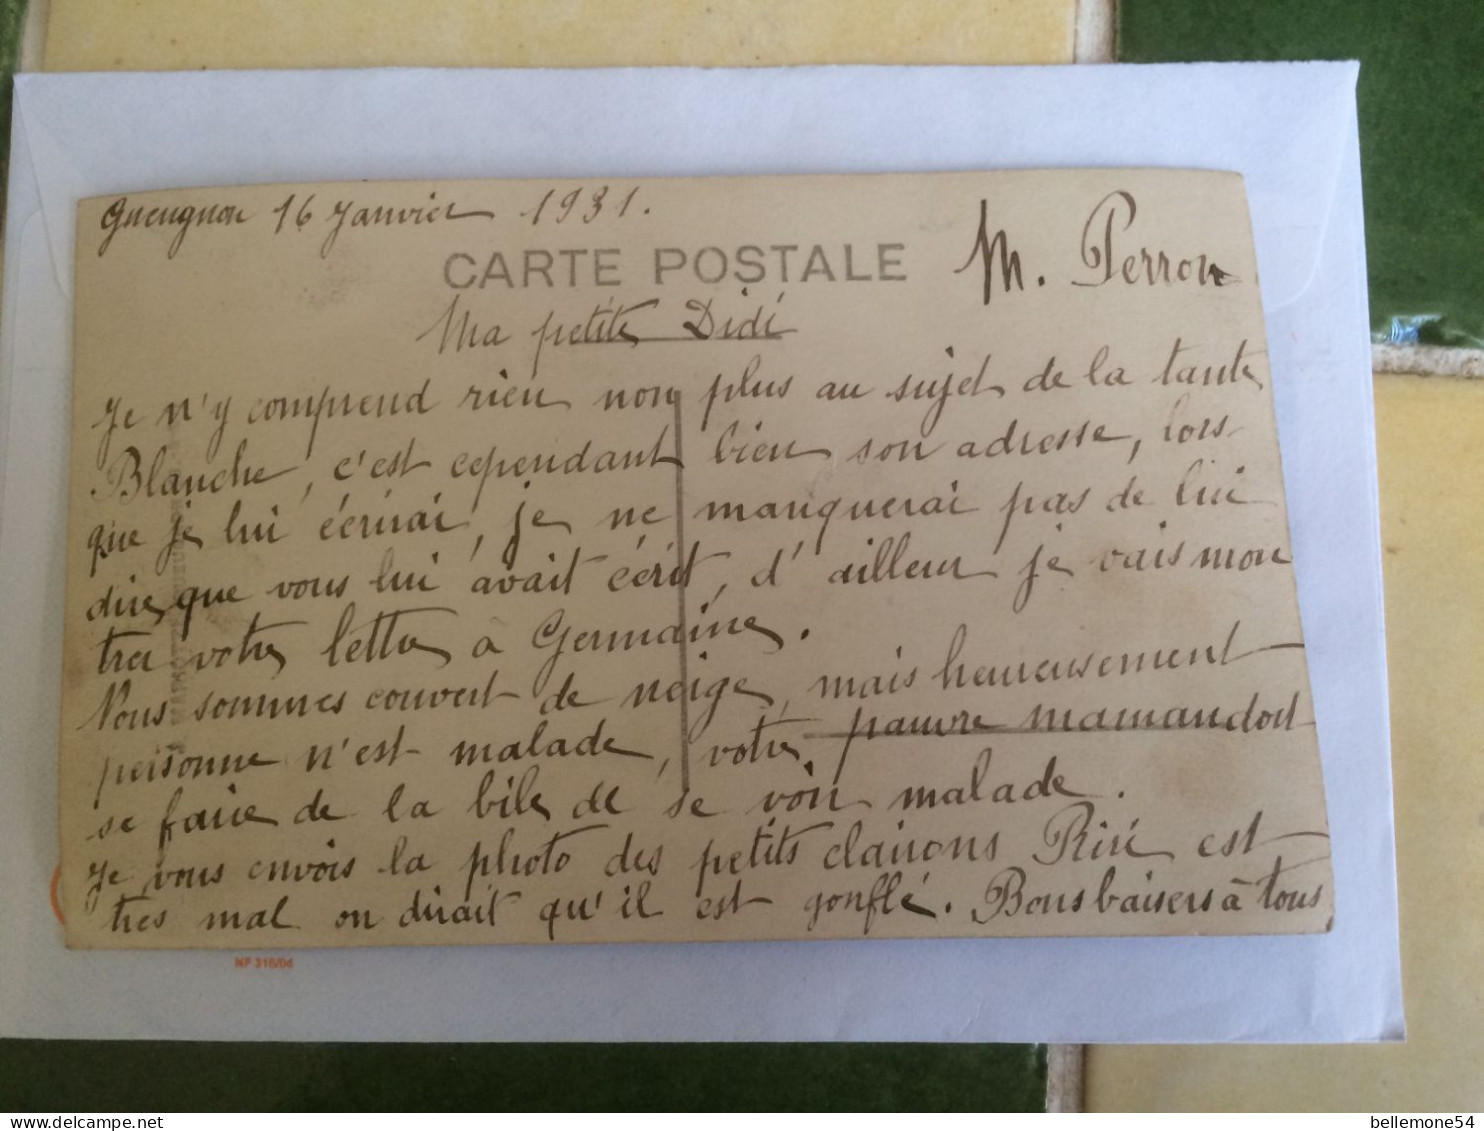 Gueugnon 16 Janvier 1931.
CARTE POSTALE
M. Perron
Ma petite Didi
Je n'y comprend rien non plus au sujet de la tante
Blanche, c'est cependant bien son adresse, lors
que je lui écrirai, je ne manquerai pas de lui
dire que vous lui avait écrit, d'ailleur je vais mon
trer votre lettre à Germaine.
Nous sommes couvert de neige, mais heureusement
personne n'est malade, votre pauvre maman doit
se faire de la bile de se voir malade.
Je vous envois la photo des petits clairons Riri est
tres mal on dirait qu'il est gonflé. Bons baisers à tous
NF 316/04
bellemone54